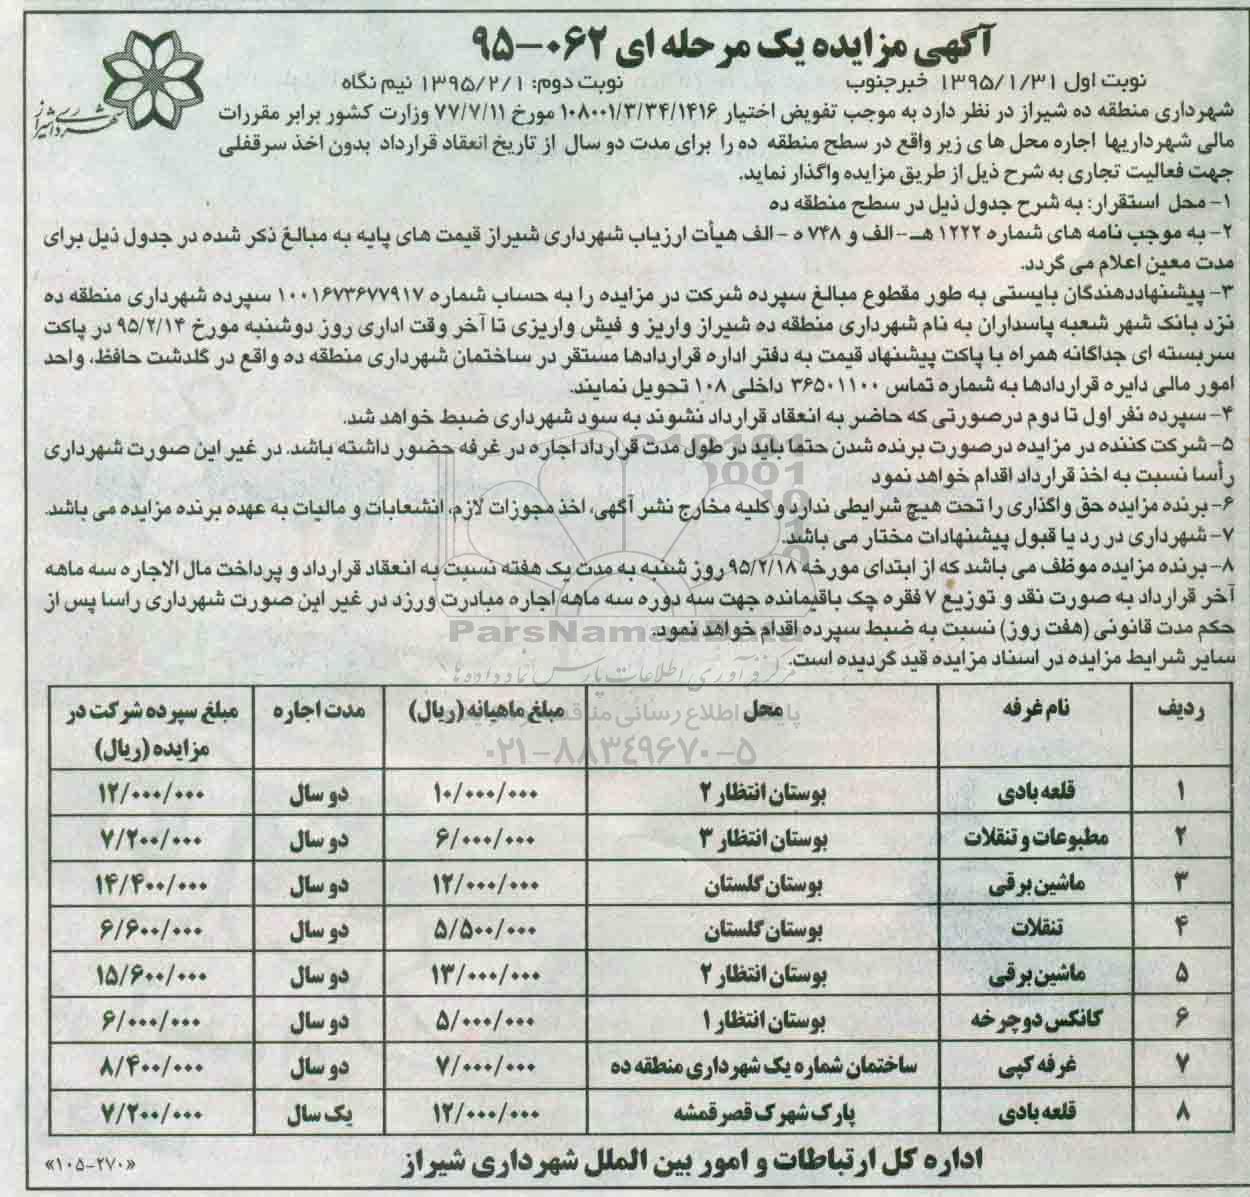 آگهی مزایده یک مرحله ای ۰۶۲-۹۵
نوبت اول ۱۳۹۵/۱/۳۱ خبرجنوب نوبت دوم: ۱۳۹۵/۲/۱ نیم نگاه
شهرداری شیراز
شهرداری منطقه ده شیراز در نظر دارد به موجب تفویض اختیار ۱۰۸۰۰۱/۳/۳۴/۱۴۱۶ مورخ ۷۷/۷/۱۱ وزارت کشور برابر مقررات
مالی شهرداریها اجاره محل های زیر واقع در سطح منطقه ده را برای مدت دو سال از تاریخ انعقاد قرارداد بدون اخذ سرقفلی
جهت فعالیت تجاری به شرح ذیل از طریق مزایده واگذار نماید.
۱- محل استقرار: به شرح جدول ذیل در سطح منطقه ده
۲- به موجب نامه های شماره ۱۲۲۲ هـ-الف و ۷۴۸ ه - الف هیأت ارزیاب شهرداری شیراز قیمت های پایه به مبالغ ذکر شده در جدول ذیل برای
مدت معین اعلام می گردد.
۳- پیشنهاددهندگان بایستی به طور مقطوع مبالغ سپرده شرکت در مزایده را به حساب شماره ۱۰۰۱۶۷۳۶۷۷۹۱۷ سپرده شهرداری منطقه ده
نزد بانک شهر شعبه پاسداران به نام شهرداری منطقه ده شیراز واریز و فیش واریزی تا آخر وقت اداری روز دوشنبه مورخ ۹۵/۲/۱۴ در پاکت
سربسته ای جداگانه همراه با پاکت پیشنهاد قیمت به دفتر اداره قراردادها مستقر در ساختمان شهرداری منطقه ده واقع در گلدشت حافظ، واحد
امور مالی دایره قراردادها به شماره تماس ۳۶۵۰۱۱۰۰ داخلی ۱۰۸ تحویل نمایند.
۴- سپرده نفر اول تا دوم درصورتی که حاضر به انعقاد قرارداد نشوند به سود شهرداری ضبط خواهد شد.
۵- شرکت کننده در مزایده درصورت برنده شدن حتما باید در طول مدت قرارداد اجاره در غرفه حضور داشته باشد. در غیر این صورت شهرداری
رأسا نسبت به اخذ قرارداد اقدام خواهد نمود
۶- برنده مزایده حق واگذاری را تحت هیچ شرایطی ندارد و کلیه مخارج نشر آگهی، اخذ مجوزات لازم، انشعابات و مالیات به عهده برنده مزایده می باشد.
۷- شهرداری در رد یا قبول پیشنهادات مختار می باشد.
۸- برنده مزایده موظف می باشد که از ابتدای مورخه ۹۵/۲/۱۸ روز شنبه به مدت یک هفته نسبت به انعقاد قرارداد و پرداخت مال الاجاره سه ماهه
آخر قرارداد به صورت نقد و توزیع ۷ فقره چک باقیمانده جهت سه دوره سه ماهه اجاره مبادرت ورزد در غیر این صورت شهرداری راسا پس از
حکم مدت قانونی (هفت روز) نسبت به ضبط سپرده اقدام خواهد نمود.
سایر شرایط مزایده در اسناد مزایده قید گردیده است.
ParsNamadData
مرکز فرآوری اطلاعات پارس نماد داده ها
۰۲۱-۸۸۳۴۹۶۷۰-۵
ردیف نام غرفه محل مبلغ ماهیانه (ریال) مدت اجاره مبلغ سپرده شرکت در مزایده (ریال)
۱ قلعه بادی بوستان انتظار ۲ ۱۰/۰۰۰/۰۰۰ دو سال ۱۲/۰۰۰/۰۰۰
۲ مطبوعات و تنقلات بوستان انتظار ۳ ۶/۰۰۰/۰۰۰ دو سال ۷/۲۰۰/۰۰۰
۳ ماشین برقی بوستان گلستان ۱۲/۰۰۰/۰۰۰ دو سال ۱۴/۴۰۰/۰۰۰
۴ تنقلات بوستان گلستان ۵/۵۰۰/۰۰۰ دو سال ۶/۶۰۰/۰۰۰
۵ ماشین برقی بوستان انتظار ۲ ۱۳/۰۰۰/۰۰۰ دو سال ۱۵/۶۰۰/۰۰۰
۶ کانکس دوچرخه بوستان انتظار ۱ ۵/۰۰۰/۰۰۰ دو سال ۶/۰۰۰/۰۰۰
۷ غرفه کپی ساختمان شماره یک شهرداری منطقه ده ۷/۰۰۰/۰۰۰ دو سال ۸/۴۰۰/۰۰۰
۸ قلعه بادی پارک شهرک قصرقمشه ۱۲/۰۰۰/۰۰۰ یک سال ۷/۲۰۰/۰۰۰
اداره کل ارتباطات و امور بین الملل شهرداری شیراز
«۱۰۵-۲۷۰»